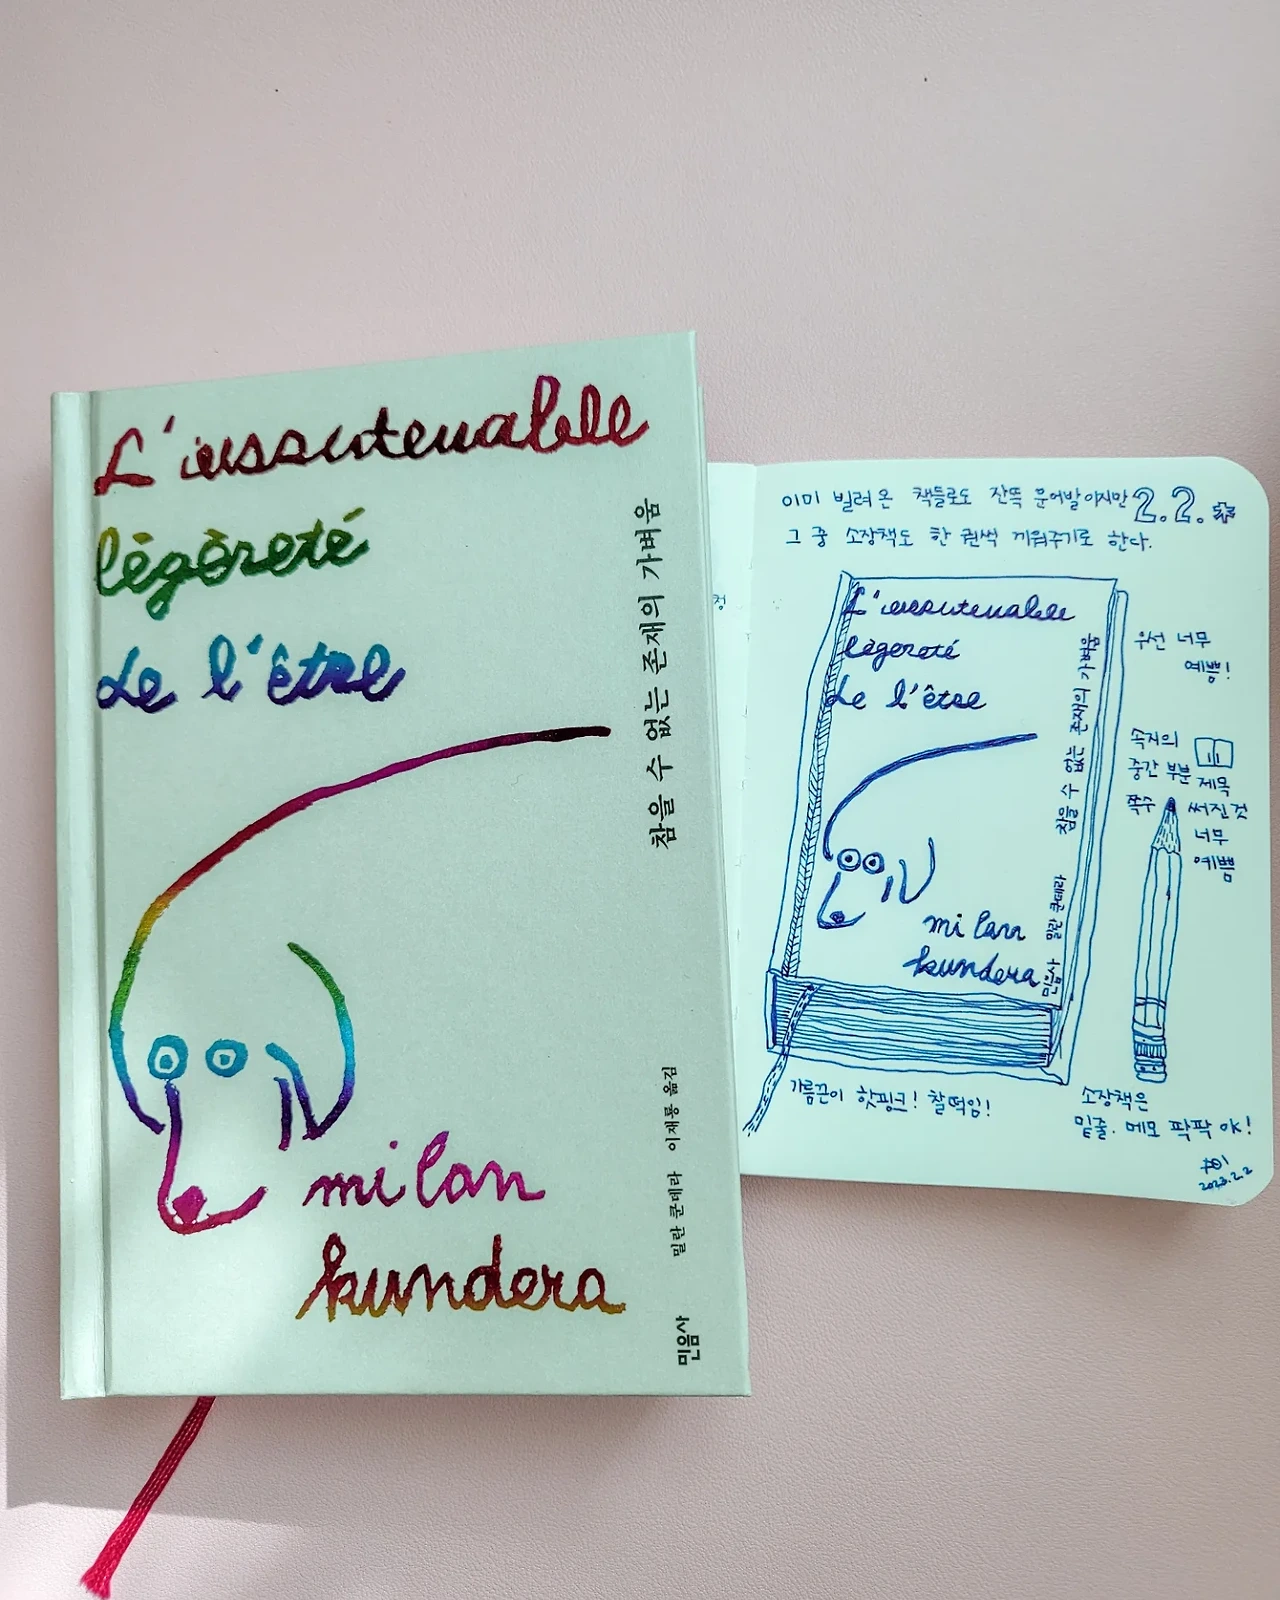 L'insoutenable
légèreté
de l'être
참을 수 없는 존재의 가벼움
밀란 쿤데라 이재룡 옮김
민음사
milan
kundera
정
이미 빌려온 책들로도 잔뜩 문어발이지만
2.2.
그 중 소장책도 한 권씩 끼워주기로 한다.
L'insoutenable
légèreté
de l'être
참을 수 없는 존재의 가벼움
밀란 쿤데라
민음사
milan
kundera
우선 너무
예쁨!
속지의
중간 부분 제목
쪽수 써진것
너무
예쁨
가름끈이 핫핑크! 찰떡임!
소장책은
밑줄. 메모 팍팍 OK!
2023.2.2